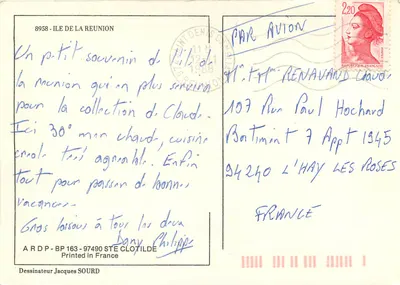 8958 - ILE DE LA REUNION
Un petit souvenir de l'île de
la reunion qui en plus servira
pour la collection de Claude.
Ici 30° mer chaude, cuisine
creole très agreable. Enfin
tout pour passer de bonnes
vacances.
Gros bisous à tous les deux
Dany Philippe
A R D P - BP 163 - 97490 STE CLOTILDE
Printed in France
Dessinateur Jacques SOURD
PAR AVION
2,20
Mr. Mme RENAVAND Claude
107 Rue Paul Hochard
Batiment 7 Appt 1945
94240 L'HAY LES ROSES
FRANCE